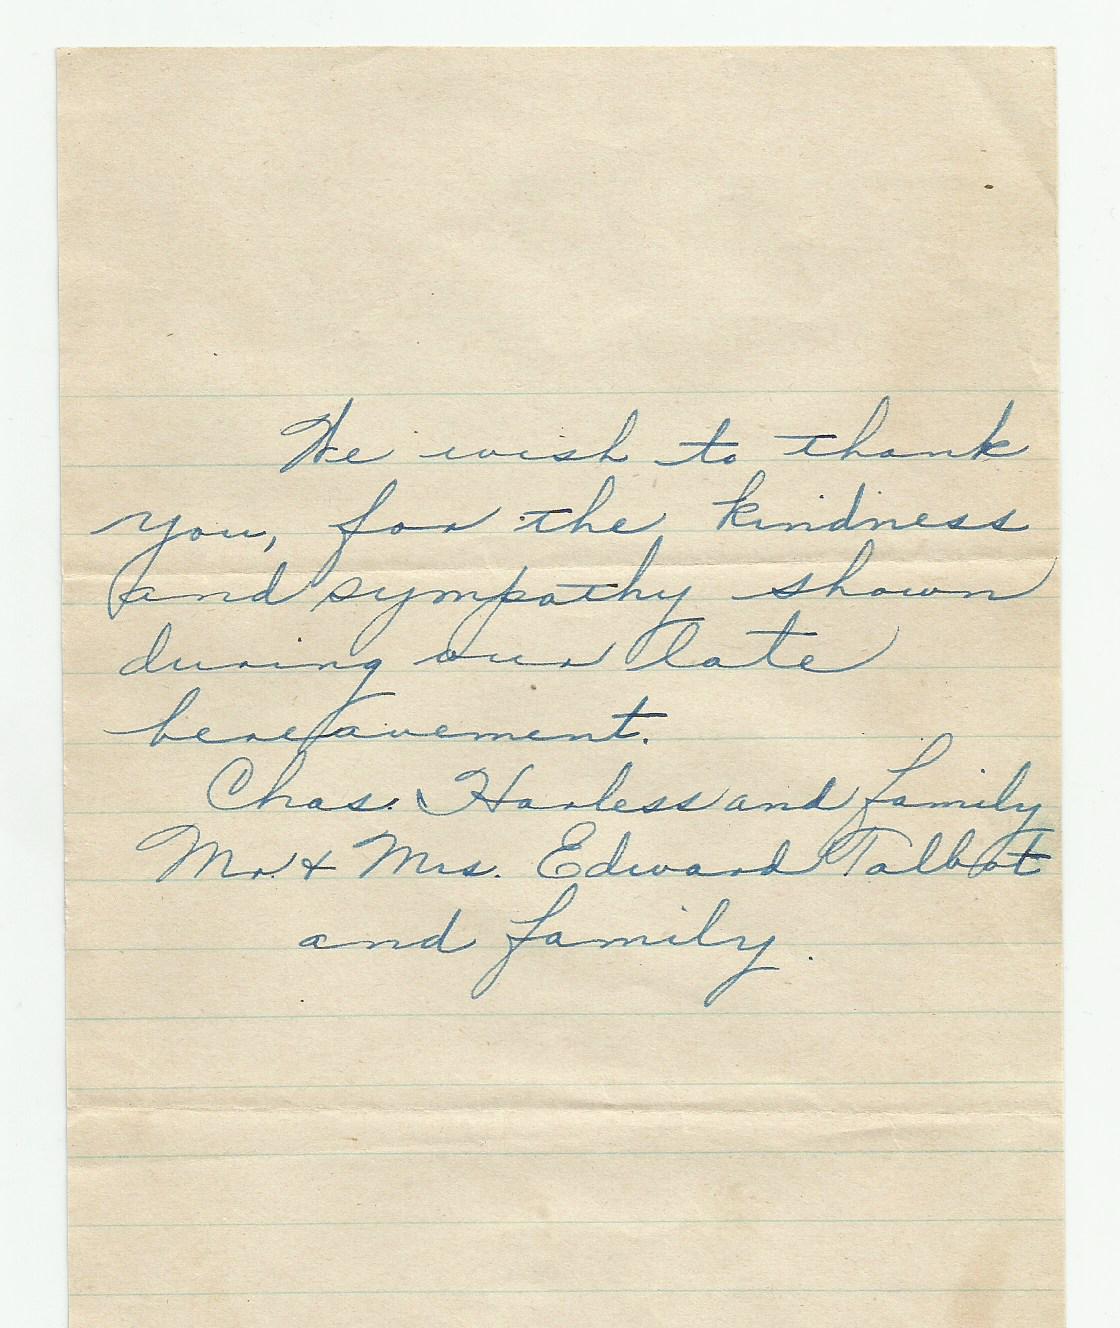 We wish to thank
you, for the kindness
and sympathy shown
during our late
bereavement.
Chas. Harless and family
Mr. & Mrs. Edward Talbot
and family.